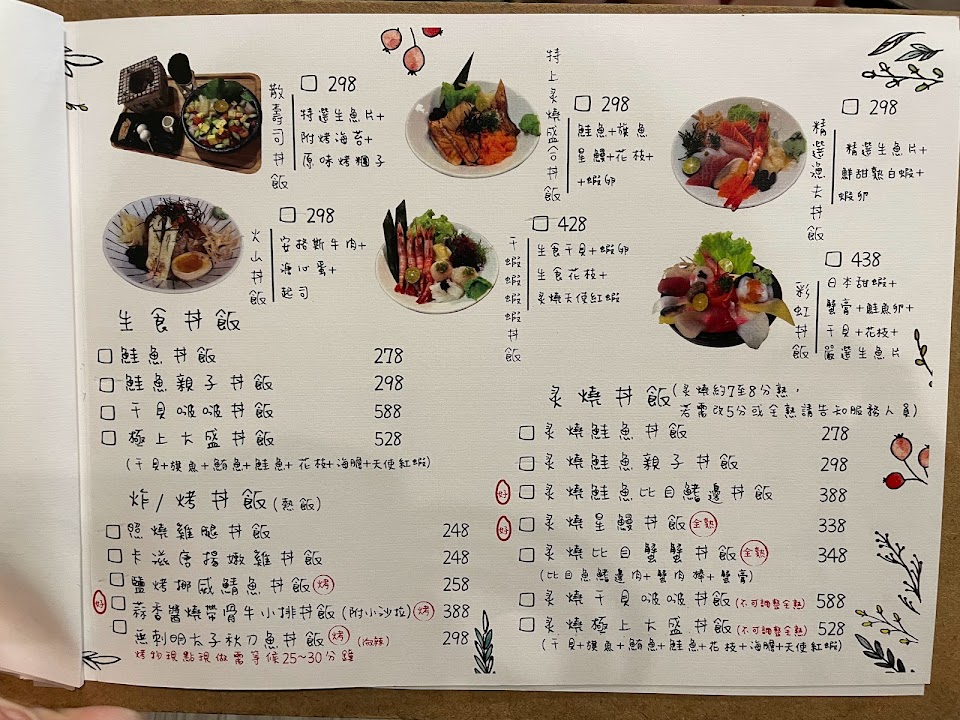 散壽司丼飯
298
特選生魚片+
附烤海苔+
原味烤糰子
特上炙燒盛合丼飯
298
鮭魚+旗魚
星鰻+花枝+
+蝦卵
精選漁夫丼飯
298
精選生魚片+
鮮甜熟白蝦+
蝦卵
火山丼飯
298
安格斯牛肉+
溏心蛋+
起司
干貝蝦蝦蝦丼飯
428
生食干貝+蝦卵
生食花枝+
炙燒天使紅蝦
彩虹丼飯
438
日本甜蝦+
蟹膏+鮭魚卵+
干貝+花枝+
嚴選生魚片
生食丼飯
鮭魚丼飯 278
鮭魚親子丼飯 298
干貝啵啵丼飯 588
極上大盛丼飯 528
(干貝+旗魚+鮪魚+鮭魚+花枝+海膽+天使紅蝦)
炸/烤丼飯(熱飯)
照燒雞腿丼飯 248
卡滋唐揚嫩雞丼飯 248
鹽烤挪威鯖魚丼飯(烤) 258
好 蒜香醬燒帶骨牛小排丼飯(附小沙拉)(烤) 388
無刺明太子秋刀魚丼飯(烤)(微辣) 298
烤物現點現做需等候25~30分鐘
炙燒丼飯(炙燒約7至8分熟,
若需改5分或全熟請告知服務人員)
炙燒鮭魚丼飯 278
炙燒鮭魚親子丼飯 298
好 炙燒鮭魚比目鰭邊丼飯 388
好 炙燒星鰻丼飯(全熟) 338
炙燒比目蟹蟹丼飯(全熟) 348
(比目魚鰭邊肉+蟹肉棒+蟹膏)
炙燒干貝啵啵丼飯(不可調整全熟) 588
炙燒極上大盛丼飯(不可調整全熟) 528
(干貝+旗魚+鮪魚+鮭魚+花枝+海膽+天使紅蝦)